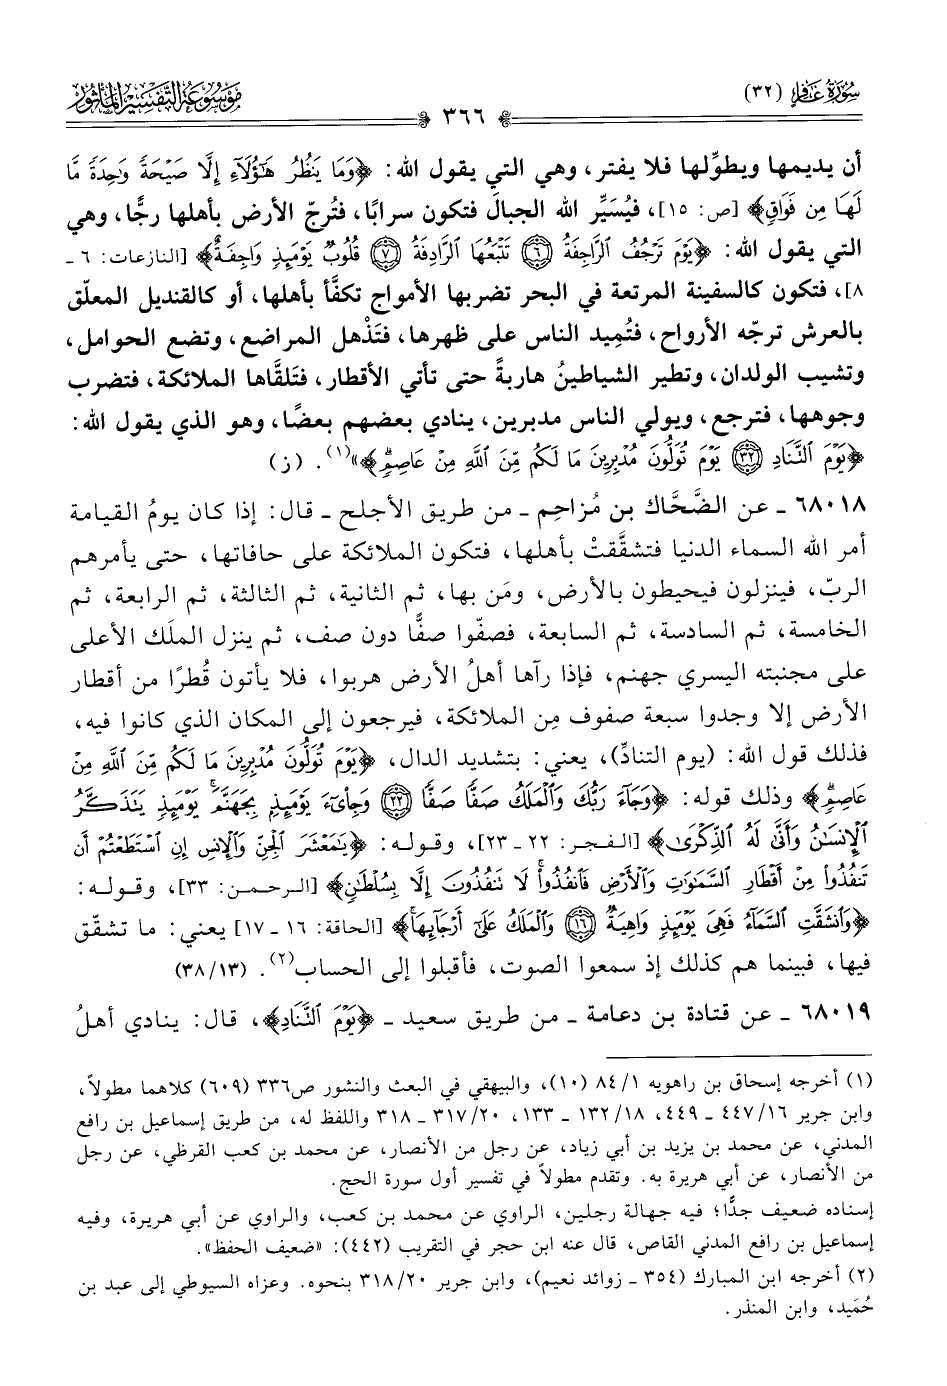 سُورَةُ غَافِرٍ (٣٢)
٣٦٦
مَوْسُوعَةُ التَّفْسِيرِ المَأْثُورِ
أن يديمها ويطوِّلها فلا يفتر، وهي التي يقول الله: ﴿وَمَا يَنظُرُ هَٰٓؤُلَآءِ إِلَّا صَيْحَةً وَٰحِدَةً مَّا
لَهَا مِن فَوَاقٍ﴾ [ص: ١٥]، فيُسَيِّر الله الجبالَ فتكون سرابًا، فتُرجّ الأرض بأهلها رجًّا، وهي
التي يقول الله: ﴿يَوْمَ تَرْجُفُ ٱلرَّاجِفَةُ ۝٦ تَتْبَعُهَا ٱلرَّادِفَةُ ۝٧ قُلُوبٌ يَوْمَئِذٍ وَاجِفَةٌ﴾ [النازعات: ٦ ـ
٨]، فتكون كالسفينة المرتعة في البحر تضربها الأمواج تكفَّأ بأهلها، أو كالقنديل المعلّق
بالعرش ترجّه الأرواح، فتُمِيد الناس على ظهرها، فتَذْهل المراضع، وتضع الحوامل،
وتشيب الولدان، وتطير الشياطينُ هاربةً حتى تأتي الأقطار، فتَلقَّاها الملائكة، فتضرب
وجوهها، فترجع، ويولي الناس مدبرين، ينادي بعضهم بعضًا، وهو الذي يقول الله:
﴿يَوْمَ ٱلتَّنَادِ ۝٣٢ يَوْمَ تُوَلُّونَ مُدْبِرِينَ مَا لَكُم مِّنَ ٱللَّهِ مِنْ عَاصِمٍ﴾»(١). (ز)
٦٨٠١٨ ـ عن الضَّحَّاك بن مُزاحِم ـ من طريق الأجلح ـ قال: إذا كان يومُ القيامة
أمر الله السماء الدنيا فتشقَّقتْ بأهلها، فتكون الملائكة على حافاتها، حتى يأمرهم
الربّ، فينزلون فيحيطون بالأرض، ومَن بها، ثم الثانية، ثم الثالثة، ثم الرابعة، ثم
الخامسة، ثم السادسة، ثم السابعة، فصفّوا صفًّا دون صف، ثم ينزل الملَك الأعلى
على مجنبته اليسري جهنم، فإذا رآها أهلُ الأرض هربوا، فلا يأتون قُطرًا من أقطار
الأرض إلا وجدوا سبعة صفوف مِن الملائكة، فيرجعون إلى المكان الذي كانوا فيه،
فذلك قول الله: (يوم التنادِّ)، يعني: بتشديد الدال، ﴿يَوْمَ تُوَلُّونَ مُدْبِرِينَ مَا لَكُم مِّنَ ٱللَّهِ مِنْ
عَاصِمٍ﴾ وذلك قوله: ﴿وَجَآءَ رَبُّكَ وَٱلْمَلَكُ صَفًّا صَفًّا ۝٢٢ وَجِا۟ىٓءَ يَوْمَئِذٍۭ بِجَهَنَّمَ يَوْمَئِذٍ يَتَذَكَّرُ
ٱلْإِنسَٰنُ وَأَنَّىٰ لَهُ ٱلذِّكْرَىٰ﴾ [الفجر: ٢٢ ـ ٢٣]، وقوله: ﴿يَٰمَعْشَرَ ٱلْجِنِّ وَٱلْإِنسِ إِنِ ٱسْتَطَعْتُمْ أَن
تَنفُذُوا۟ مِنْ أَقْطَارِ ٱلسَّمَٰوَٰتِ وَٱلْأَرْضِ فَٱنفُذُوا۟ لَا تَنفُذُونَ إِلَّا بِسُلْطَٰنٍ﴾ [الرحمن: ٣٣]، وقوله:
﴿وَٱنشَقَّتِ ٱلسَّمَآءُ فَهِىَ يَوْمَئِذٍ وَاهِيَةٌ ۝١٦ وَٱلْمَلَكُ عَلَىٰٓ أَرْجَآئِهَا﴾ [الحاقة: ١٦ ـ ١٧] يعني: ما تشقّق
فيها، فبينما هم كذلك إذ سمعوا الصوت، فأقبلوا إلى الحساب(٢). (٣٨/١٣)
٦٨٠١٩ ـ عن قتادة بن دعامة ـ من طريق سعيد ـ ﴿يَوْمَ ٱلتَّنَادِ﴾، قال: ينادي أهلُ
(١) أخرجه إسحاق بن راهويه ٨٤/١ (١٠)، والبيهقي في البعث والنشور ص٣٣٦ (٦٠٩) كلاهما مطولاً،
وابن جرير ٤٤٧/١٦ ـ ٤٤٩، ١٣٢/١٨ ـ ١٣٣، ٣١٧/٢٠ ـ ٣١٨ واللفظ له، من طريق إسماعيل بن رافع
المدني، عن محمد بن يزيد بن أبي زياد، عن رجل من الأنصار، عن محمد بن كعب القرظي، عن رجل
من الأنصار، عن أبي هريرة به. وتقدم مطولاً في تفسير أول سورة الحج.
إسناده ضعيف جدًّا؛ فيه جهالة رجلين، الراوي عن محمد بن كعب، والراوي عن أبي هريرة، وفيه
إسماعيل بن رافع المدني القاص، قال عنه ابن حجر في التقريب (٤٤٢): «ضعيف الحفظ».
(٢) أخرجه ابن المبارك (٣٥٤ ـ زوائد نعيم)، وابن جرير ٣١٨/٢٠ بنحوه. وعزاه السيوطي إلى عبد بن
حُمَيد، وابن المنذر.